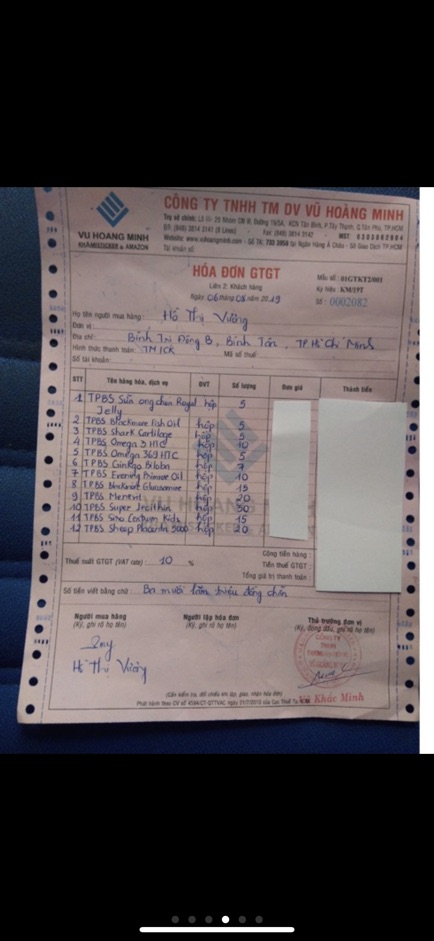 CÔNG TY TNHH TM DV VŨ HOÀNG MINH
VU HOANG MINH
KHANGSIZCHEN & AMAZON
Website: www.vuhoangminh.com - Số TK: 702 3959 tại Ngân Hàng Á Châu - Sở Giao Dịch TP.HCM
Tài khoản số:
HÓA ĐƠN GTGT
Liên 2: Khách hàng
Ngày 06 tháng 08 năm 2019
Mẫu số: 01GTKT2/001
Ký hiệu: KM/19T
Số : 0002082
Họ tên người mua hàng : Hồ Thị Vương
Đơn vị :
Địa chỉ : Bình Trị Đông B, Bình Tân, TP Hồ Chí Minh
Hình thức thanh toán: TM/CK Mã số thuế:
Số tài khoản:
STT Tên hàng hóa, dịch vụ ĐVT Số lượng Đơn giá Thành tiền
1 TPBS Sữa ong chúa Royal hộp 5
Jelly
2 TPBS Blackmore fish Oil hộp 5
3 TPBS Shark Cartilage hộp 5
4 TPBS Omega 3 HTC hộp 10
5 TPBS Omega 369 HTC hộp 5
6 TPBS Ginkgo Biloba hộp 7
7 TPBS Evening Primrose Oil hộp 10
8 TPBS Blackmore Glucosamine hộp 15
9 TPBS hộp 20
10 TPBS Super lecithin hộp 50
11 TPBS Kids hộp 15
12 TPBS Sheep Placenta 5000 hộp 20
VU HOANG MINH
Cộng tiền hàng :
Thuế suất GTGT (VAT rate) : 10 % Tiền thuế GTGT :
Tổng giá trị thanh toán :
Số tiền viết bằng chữ : Ba mươi lăm triệu đồng chẵn
Người mua hàng
(Ký, ghi rõ họ tên)
Người lập hóa đơn
(Ký, ghi rõ họ tên)
Thủ trưởng đơn vị
(Ký, đóng dấu, ghi rõ họ tên)
Hồ Thị Vương
CÔNG TY
TNHH
VŨ HOÀNG MINH
Vũ Khắc Minh
(Cần kiểm tra, đối chiếu khi lập, giao, nhận hóa đơn)